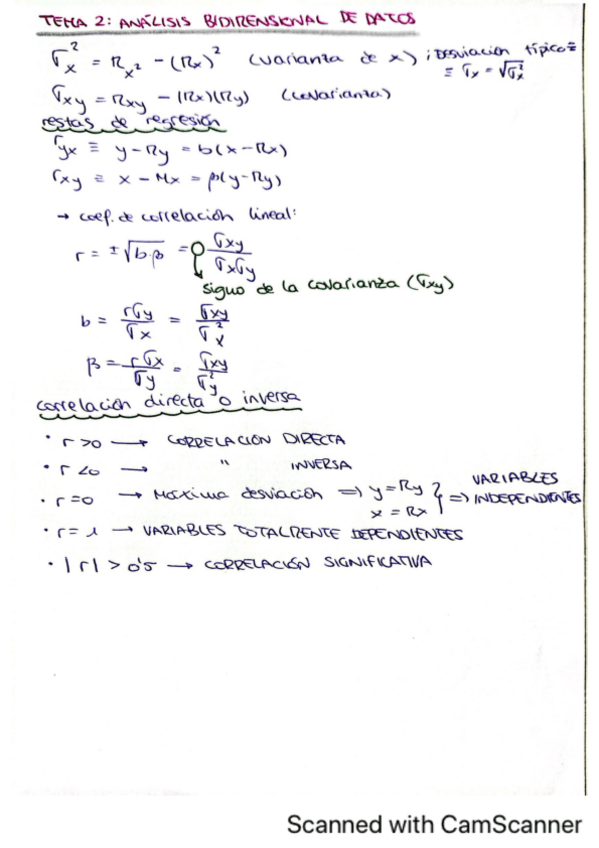 TEMA 2: ANÁLISIS BIDIMENSIONAL DE DATOS
σx² = Mx² - (Mx)² (varianza de x) ; Desviación típica ≡
≡ σx = √σx²
σxy = Mxy - (Mx)(My) (covarianza)
restas de regresión
ryx ≡ y - My = b(x - Mx)
rxy ≡ x - Mx = β(y - My)
→ coef. de correlación lineal:
r = ±√b·β = σxy / σxσy
signo de la covarianza (σxy)
b = rσy / σx = σxy / σx²
β = rσx / σy = σxy / σy²
correlación directa o inversa
• r > 0 → CORRELACIÓN DIRECTA
• r < 0 → " INVERSA
• r = 0 → Máxima desviación ⇒ y = My x = Mx } ⇒ VARIABLES INDEPENDIENTES
• r = 1 → VARIABLES TOTALMENTE DEPENDIENTES
• |r| > 0'5 → CORRELACIÓN SIGNIFICATIVA
Scanned with CamScanner